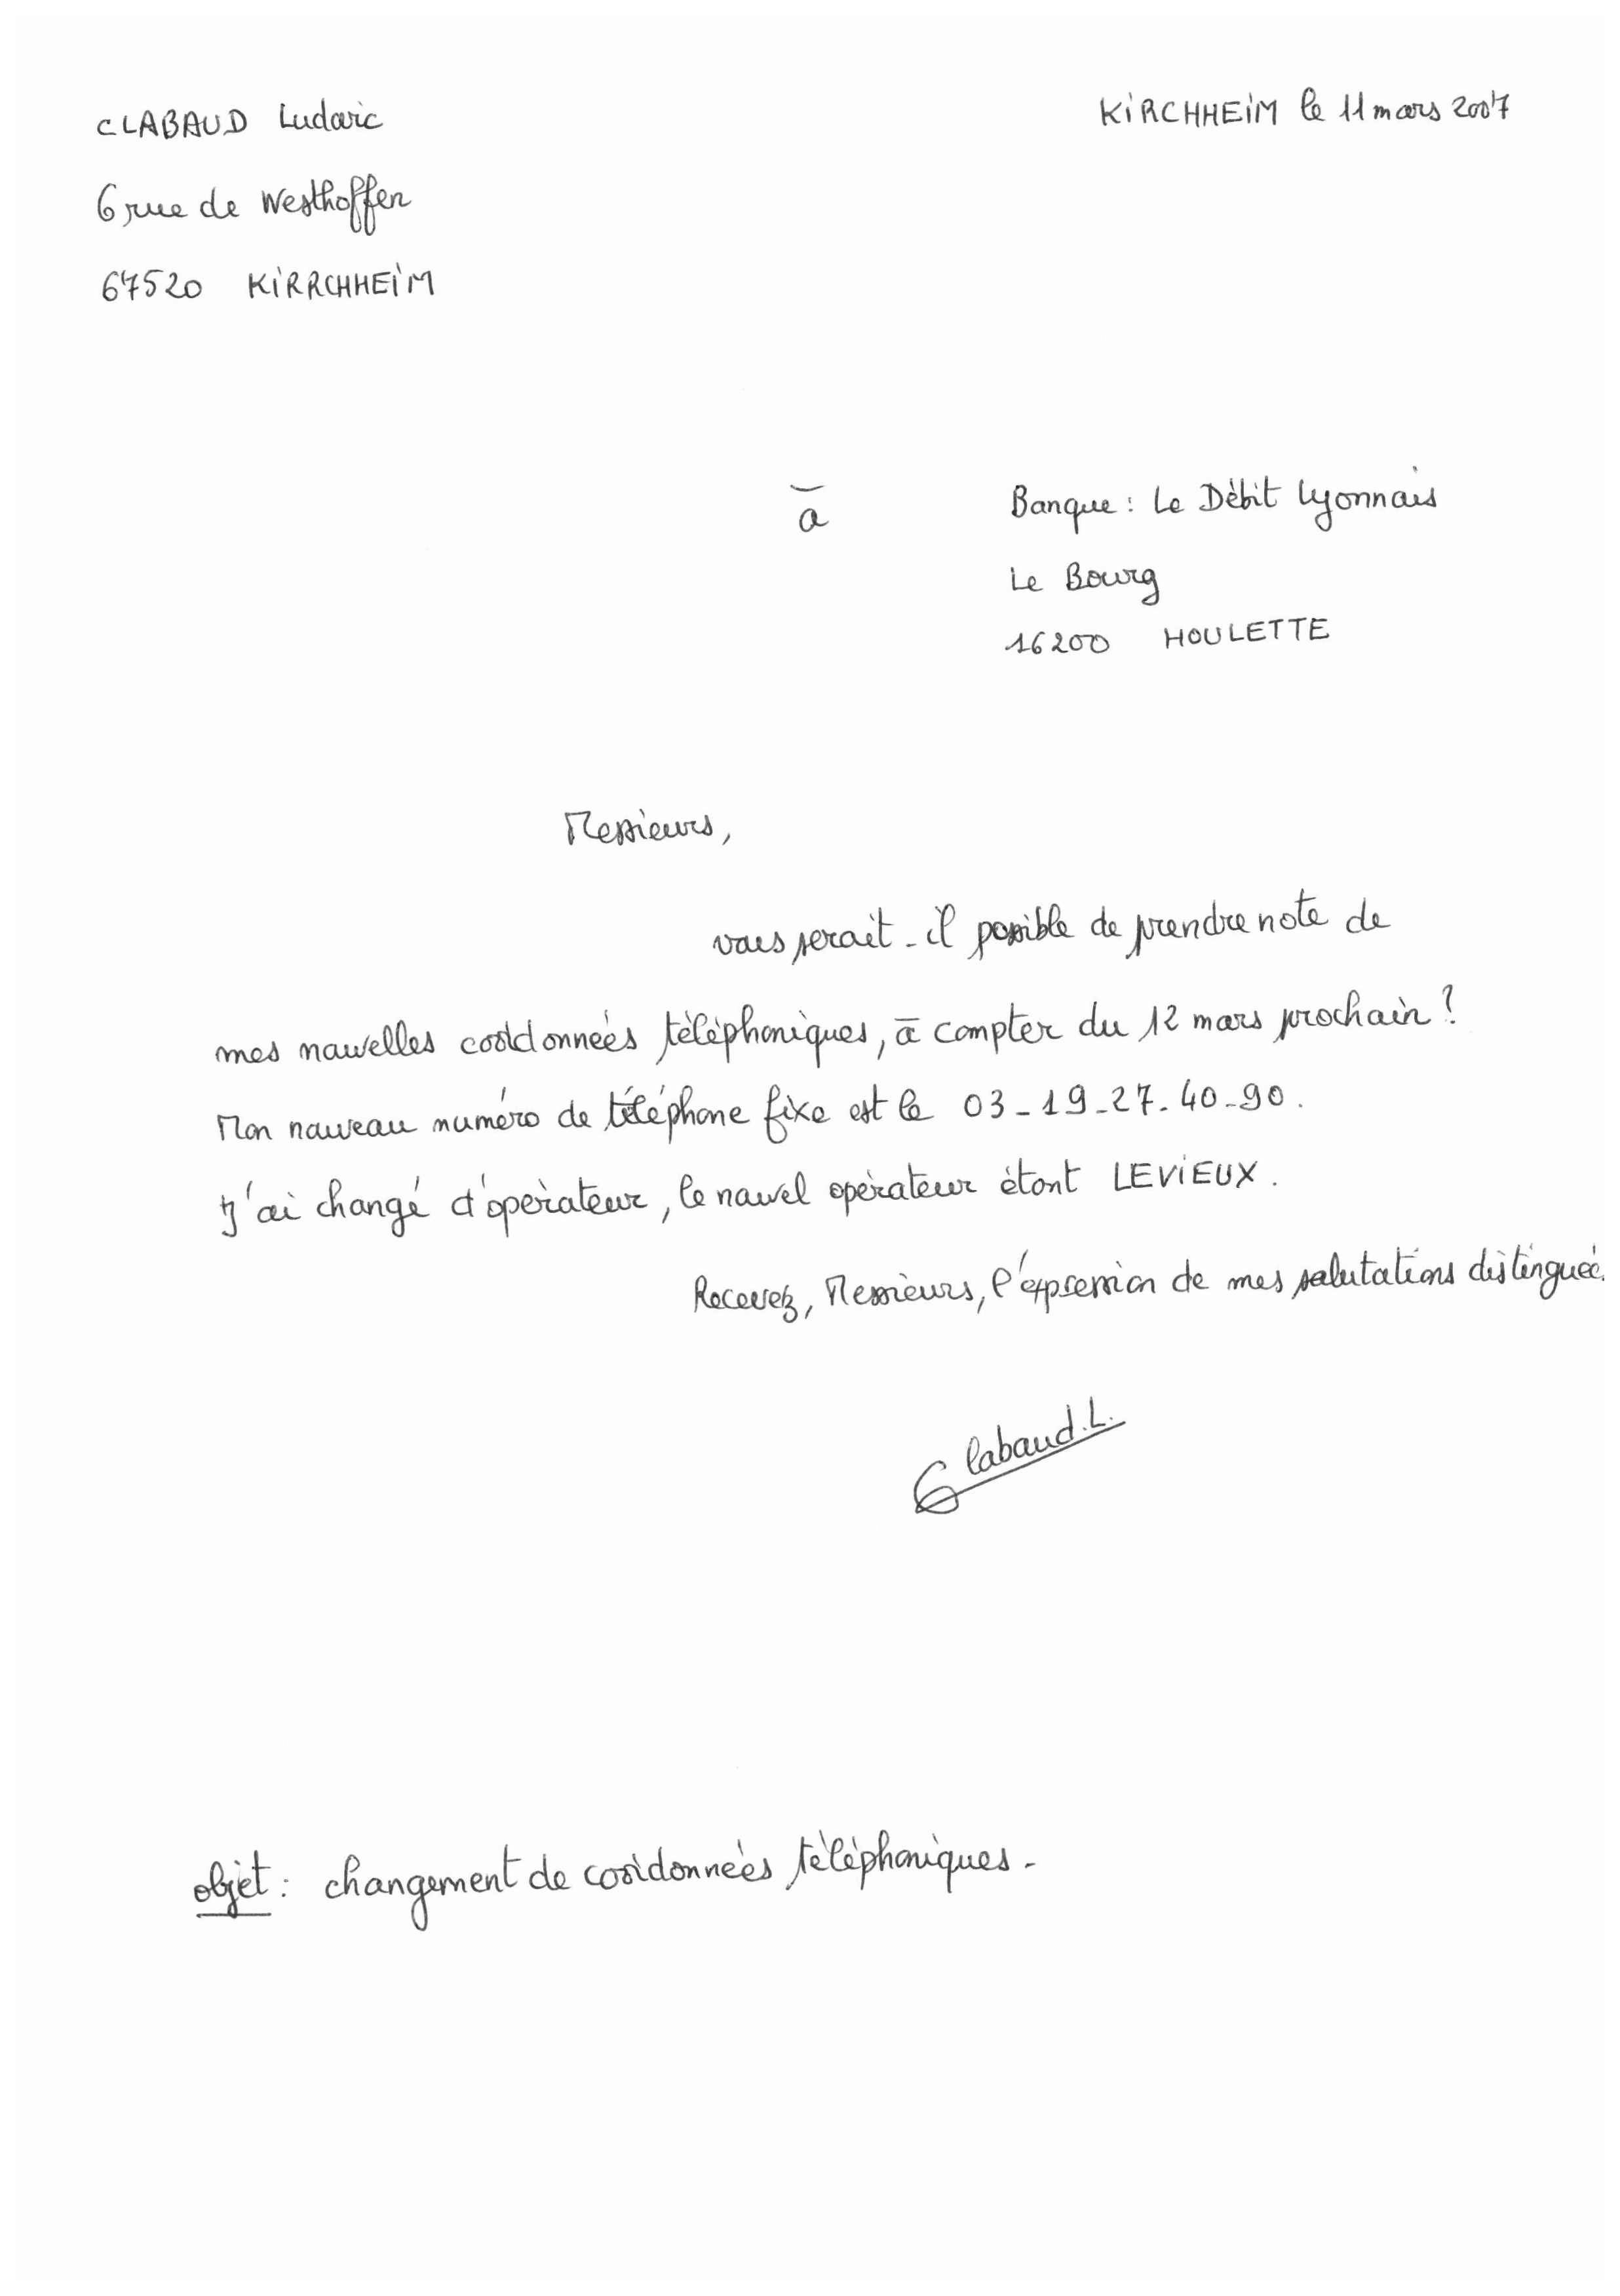 CLABAUD Ludovic
KIRCHHEIM le 11 mars 2007
6 rue de Westhoffen
67520 KIRRCHHEIM
à
Banque : Le Débit Lyonnais
Le Bourg
16200 HOULETTE
Messieurs,
vous serait-il possible de prendre note de
mes nouvelles coordonnées téléphoniques, à compter du 12 mars prochain ?
Mon nouveau numéro de téléphone fixe est le 03-19-27-40-90.
J'ai changé d'opérateur, le nouvel opérateur étant LEVIEUX.
Recevez, Messieurs, l'expression de mes salutations distinguée
Clabaud.L.
objet : changement de coordonnées téléphoniques.